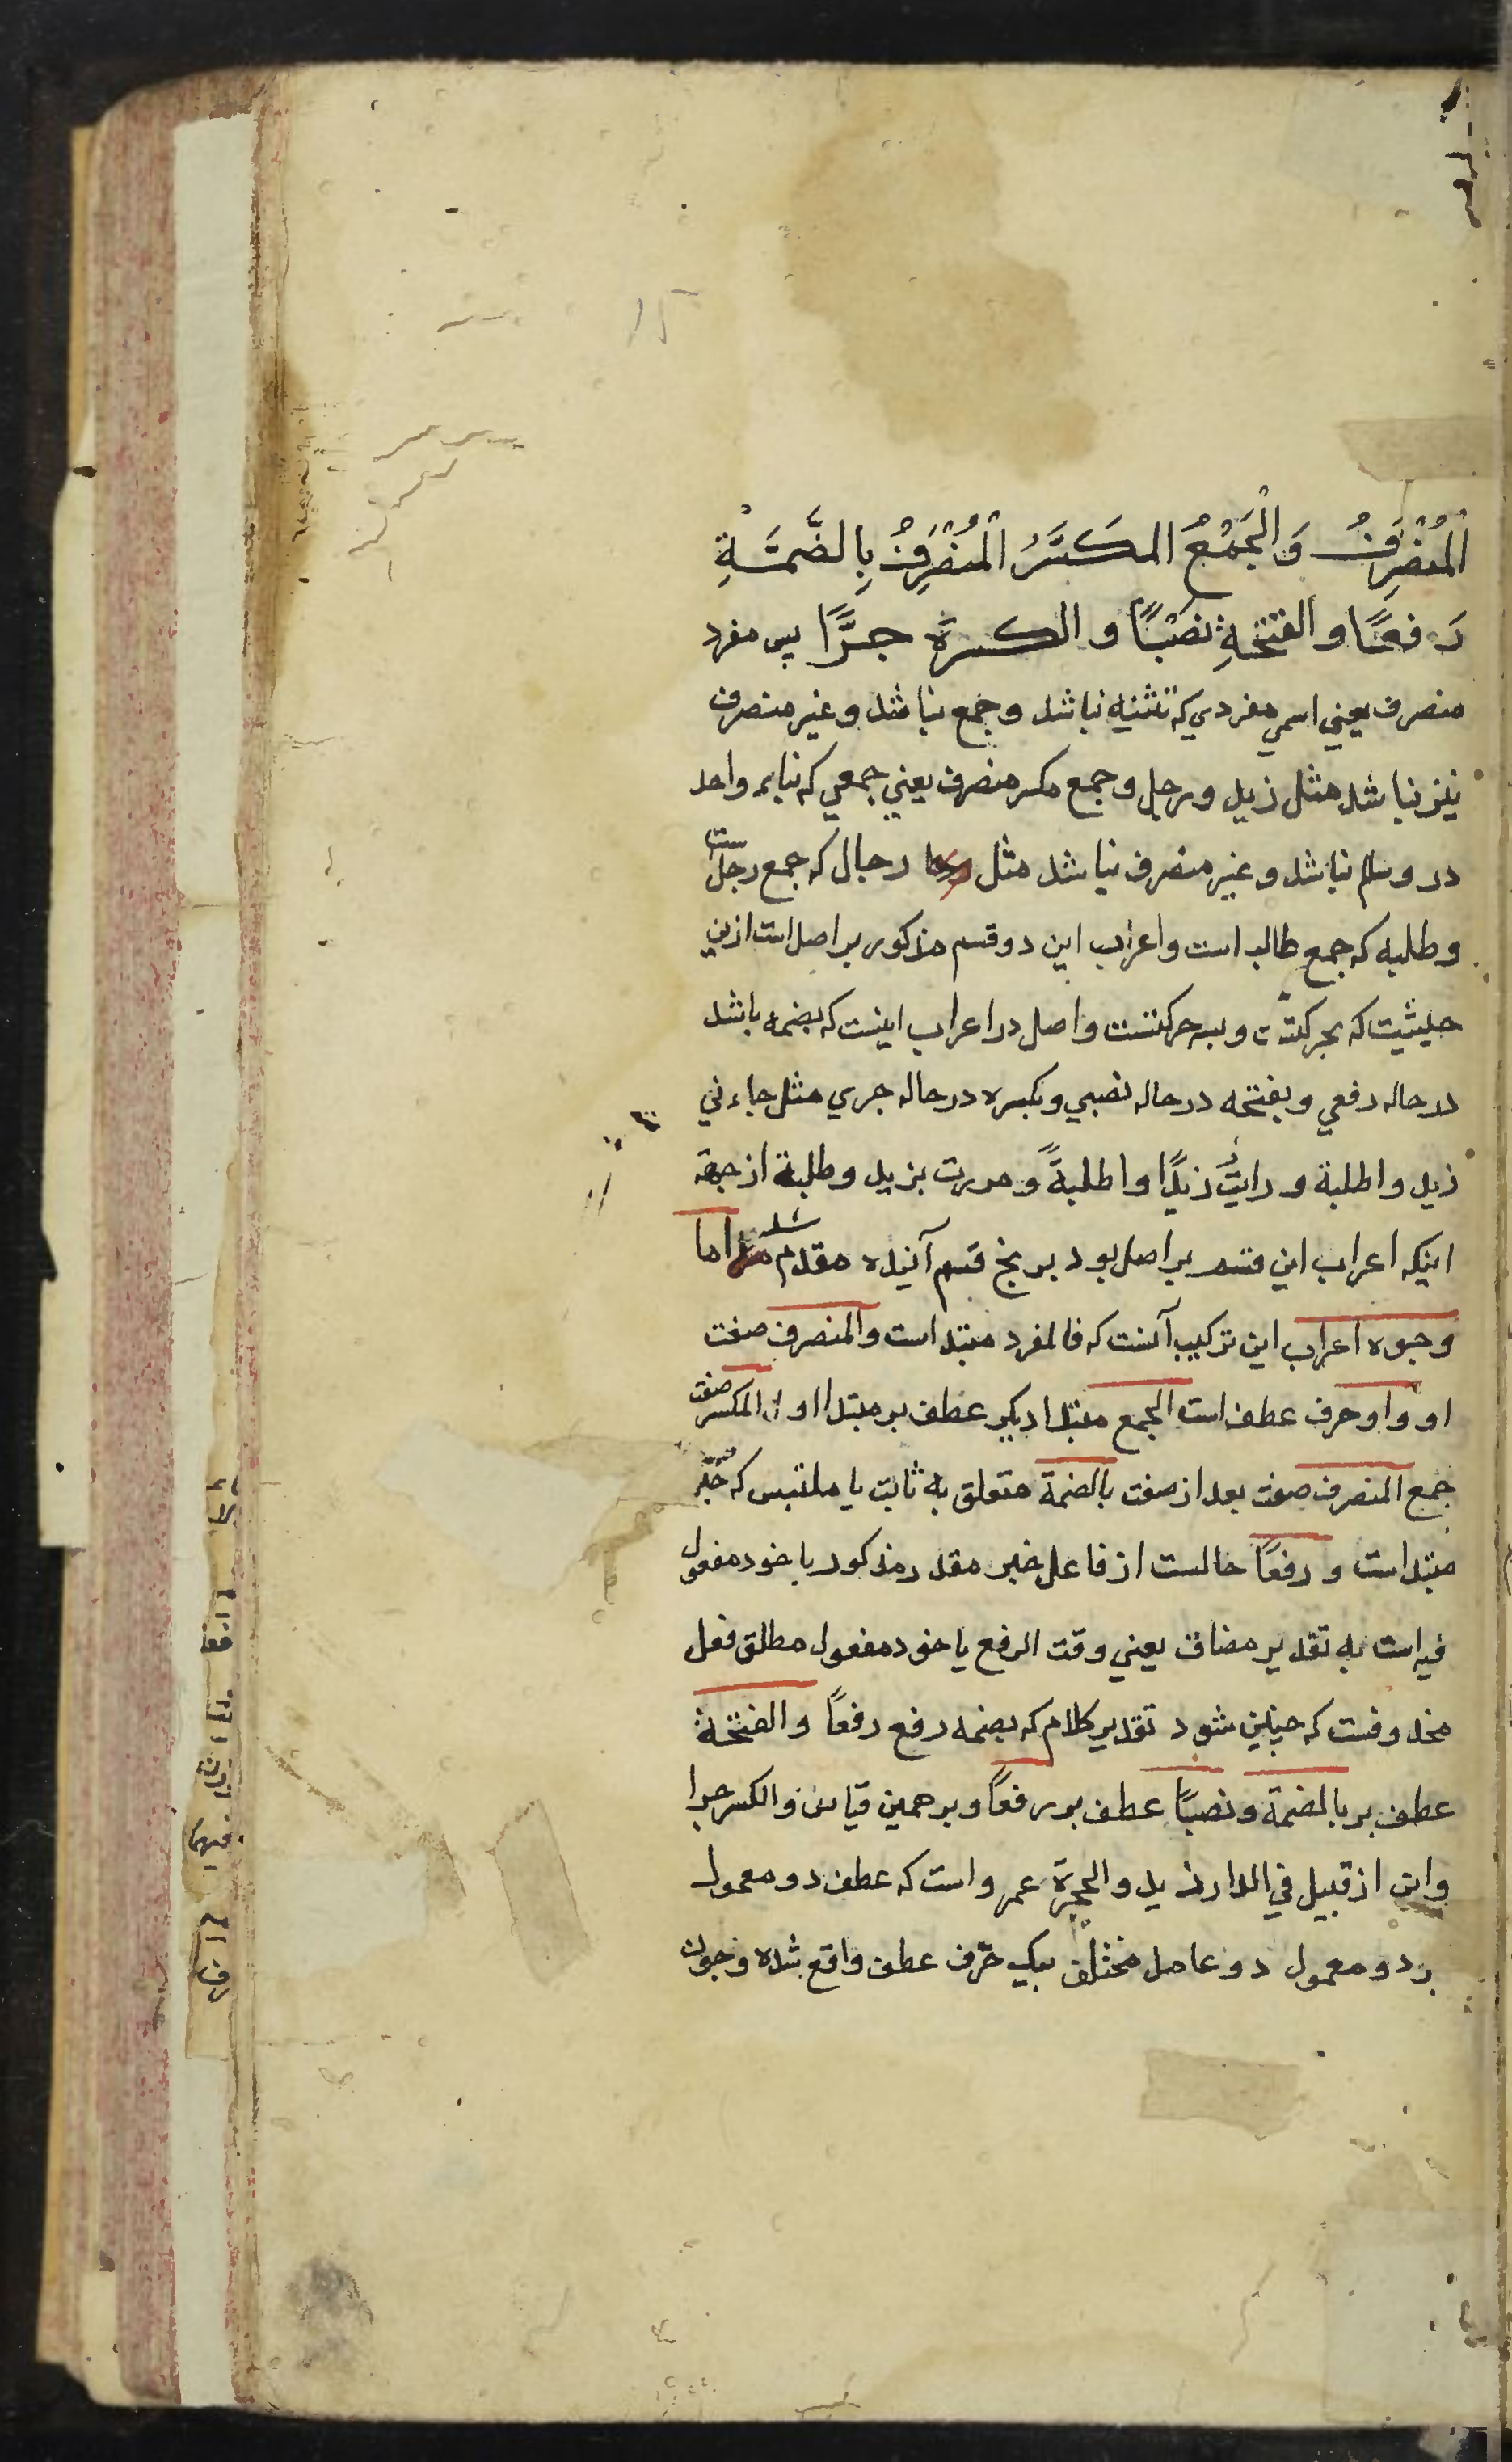 اَلْمُنْصَرِفُ وَالْجَمْعُ المكَسَّرُ الْمُنْصَرِفُ بِالضَّمَّةِ
رَفعًا والفتحَةِ نَصْبًا والكسرَة جرًّا پس مفرد
منصرف يعني اسمي مفردي كه تثنيه نباشد وجمع نباشد وغير منصرف
نيز نباشد مثل زيد ورجل وجمع مكسر منصرف يعني جمعي كه بناء واحد
درو سالم نباشد وغير منصرف نباشد مثل رجال كه جمع رجل ست
وطلبه كه جمع طالب است واعراب اين دو قسم مذكور بر اصل است ازين
حيثيت كه بحركتست وبسه حركتست واصل در اعراب اينست كه بضمه باشد
در حاله رفعي وبفتحه در حاله نصبي وبكسره در حاله جري مثل جاءني
زيد واطلبة ورايتُ زيدًا واطلبةً ومررت بزيد وطلبة از جهة
اينكه اعراب اين قسم بر اصل بود بر پنج قسم آينده مقدم شد اما
وجوه اعراب اين تركيب آنست كه فالمفرد مبتداست والمنصرف صفت
او واو حرف عطف است الجمع مبتدا ديگر عطف بر مبتدا اول المكسر صفت
جمع المنصرف صفت بعد از صفت بالضمة متعلق به ثابت يا ملتبس كه خبر
مبتداست ورفعًا حالست از فاعل خبر مقدر مذكور يا خود مفعول
فيه است به تقدير مضاف يعني وقت الرفع يا خود مفعول مطلق فعل
محذوفست كه چنين شود تقدير كلام كه بضمه رفع رفعًا والفتحة
عطف بر بالضمة ونصبًا عطف بر رفعًا وبر همين قياس والكسر جرا
واين از قبيل في الدار زيد والحجرة عمرو است كه عطف دو معمول
بر دو معمول دو عامل مختلف بيك حرف عطف واقع شده وچون